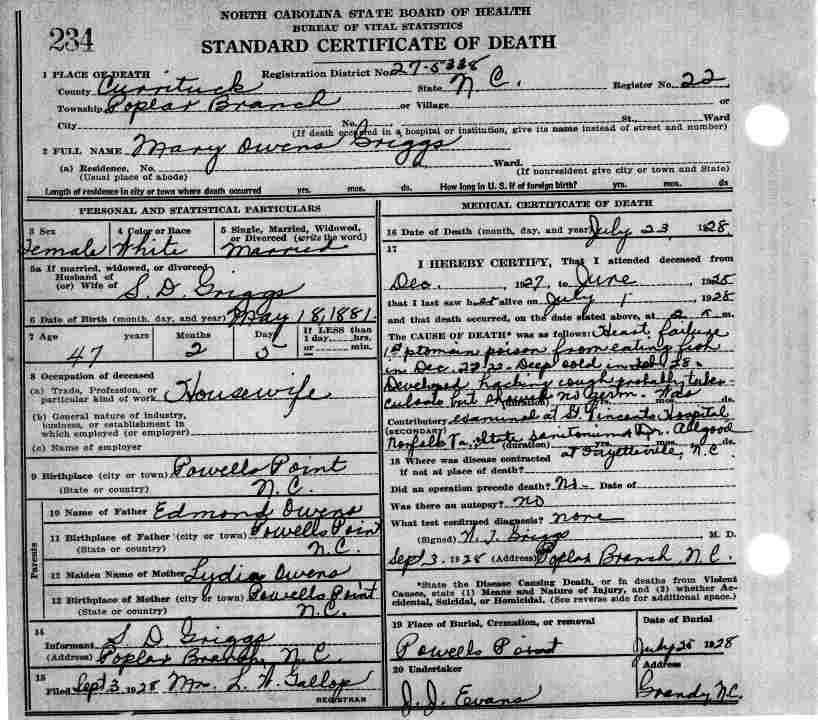 NORTH CAROLINA STATE BOARD OF HEALTH
BUREAU OF VITAL STATISTICS
234
STANDARD CERTIFICATE OF DEATH
1 PLACE OF DEATH Registration District No. 27-5338
County Currituck State N C. Register No. 22
Township Poplar Branch or Village or
City No. St., Ward
(If death occurred in a hospital or institution, give its name instead of street and number)
2 FULL NAME Mary Owens Griggs
(a) Residence, No. Ward.
(Usual place of abode) (If nonresident give city or town and State)
Length of residence in city or town where death occurred yrs. mos. ds. How long in U. S. if of foreign birth? yrs. mos. ds.
PERSONAL AND STATISTICAL PARTICULARS
3 Sex 4 Color or Race 5 Single, Married, Widowed,
or Divorced (write the word)
Female White Married
5a If married, widowed, or divorced
Husband of
(or) Wife of S. D Griggs
6 Date of Birth (month, day, and year) May 18, 1881.
7 Age years Months Days If LESS than
1 day, hrs.
or min.
47 2 5
8 Occupation of deceased
(a) Trade, Profession, or
particular kind of work Housewife
(b) General nature of industry,
business, or establishment in
which employed (or employer)
(c) Name of employer
9 Birthplace (city or town) Powells Point
(State or country) N.C.
Parents
10 Name of Father Edmond Owens
11 Birthplace of Father (city or town) Powells Point
(State or country) N.C.
12 Maiden Name of Mother Lydia Owens
13 Birthplace of Mother (city or town) Powells Point
(State or country) N.C.
14
Informant S D Griggs
(Address) Poplar Branch, N. C.
15
Filed Sept 3, 1928 Mrs. L. W. Gallop
REGISTRAR
MEDICAL CERTIFICATE OF DEATH
16 Date of Death (month, day, and year) July 23, 1928.
17
I HEREBY CERTIFY, That I attended deceased from
Dec. , 1927, to June , 1928
that I last saw h er alive on July 1 , 1928
and that death occurred, on the date stated above, at m.
The CAUSE OF DEATH* was as follows: Heart failure
1st ptomain poison from eating fish
in Dec. Deep cold in Feb 28.
Developed hacking cough probably tuber-
culosis but showed no germ. Was
(duration) yrs. mos. ds.
Contributory examined at St. Vincents Hospital
(SECONDARY)
Norfolk Va. State Sanitorium & Dr. Allgood
(duration) yrs. mos. ds.
18 Where was disease contracted at Fayetteville, N.C.
if not at place of death?
Did an operation precede death? No- Date of
Was there an autopsy? no
What test confirmed diagnosis? none
(Signed) Griggs M. D.
Sept 3, 1928 (Address) Poplar Branch, N. C.
*State the Disease Causing Death, or in deaths from Violent
Causes, state (1) Means and Nature of Injury, and (2) whether Ac-
cidental, Suicidal, or Homicidal. (See reverse side for additional space.)
19 Place of Burial, Cremation, or removal Date of Burial
Powells Point July 25 1928
20 Undertaker Address
J. J. Evans Grandy N.C.